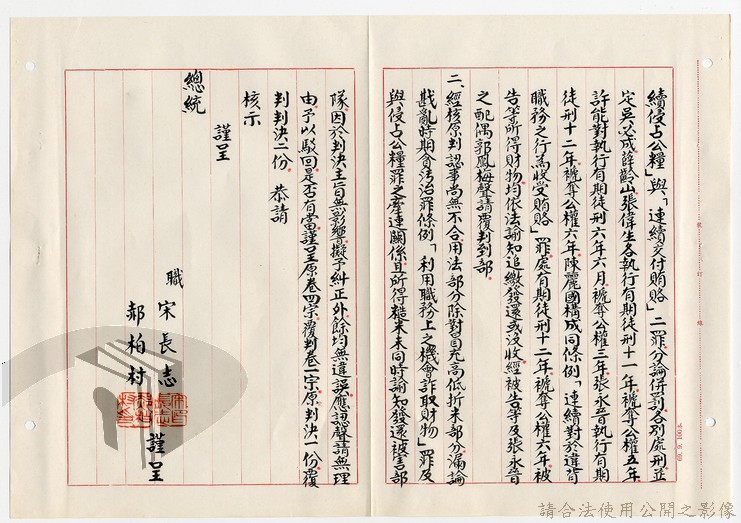 續侵占公糧」與「連續交付賄賂」二罪分論併罰各別處刑並
定吳必成薛齡山張偉生各執行有期徒刑十一年褫奪公權五年
許能對執行有期徒刑六年六月褫奪公權三年張永晉執行有期
徒刑十二年褫奪公權六年陳麗國構成同條例「連續對於違背
職務之行為收受賄賂」罪處有期徒刑十二年褫奪公權六年被
告等所得財物均依法諭知追繳發還或沒收經被告等及張永晉
之配偶郭鳳梅聲請覆判到部
二、經核原判認事尚無不合用法部分除對冒充高低折米部分漏論
戡亂時期貪污治罪條例「利用職務上之機會詐取財物」罪及
與侵占公糧罪之牽連關係且所得糙米未同時諭知發還被害部
隊因於判決主旨無影響擬予糾正外餘均無違誤應認聲請無理
由予以駁回是否有當謹呈原卷四宗覆判卷一宗原判決一份覆
判判決二份 恭請
核示
謹呈
總統
職 宋長志
郝柏村 謹呈
69. 9. 100本
請合法使用公開之影像